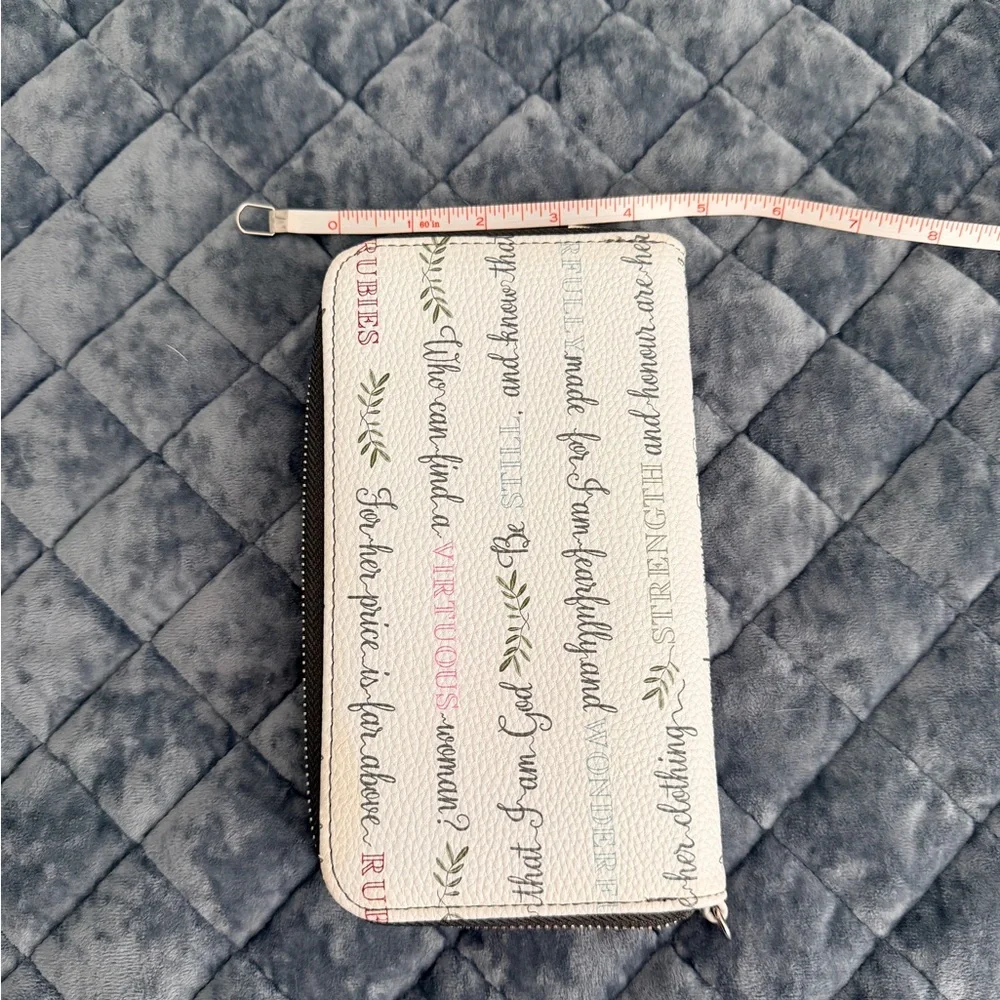 0 1 60 in 2 3 4 5 6 7 8
RUBIES For her price is far above RUB
Who can find a VIRTUOUS woman?
that I am God Be STILL, and know tha
RFULLY made for I am fearfully and WONDERF
e her clothing STRENGTH and honour are her